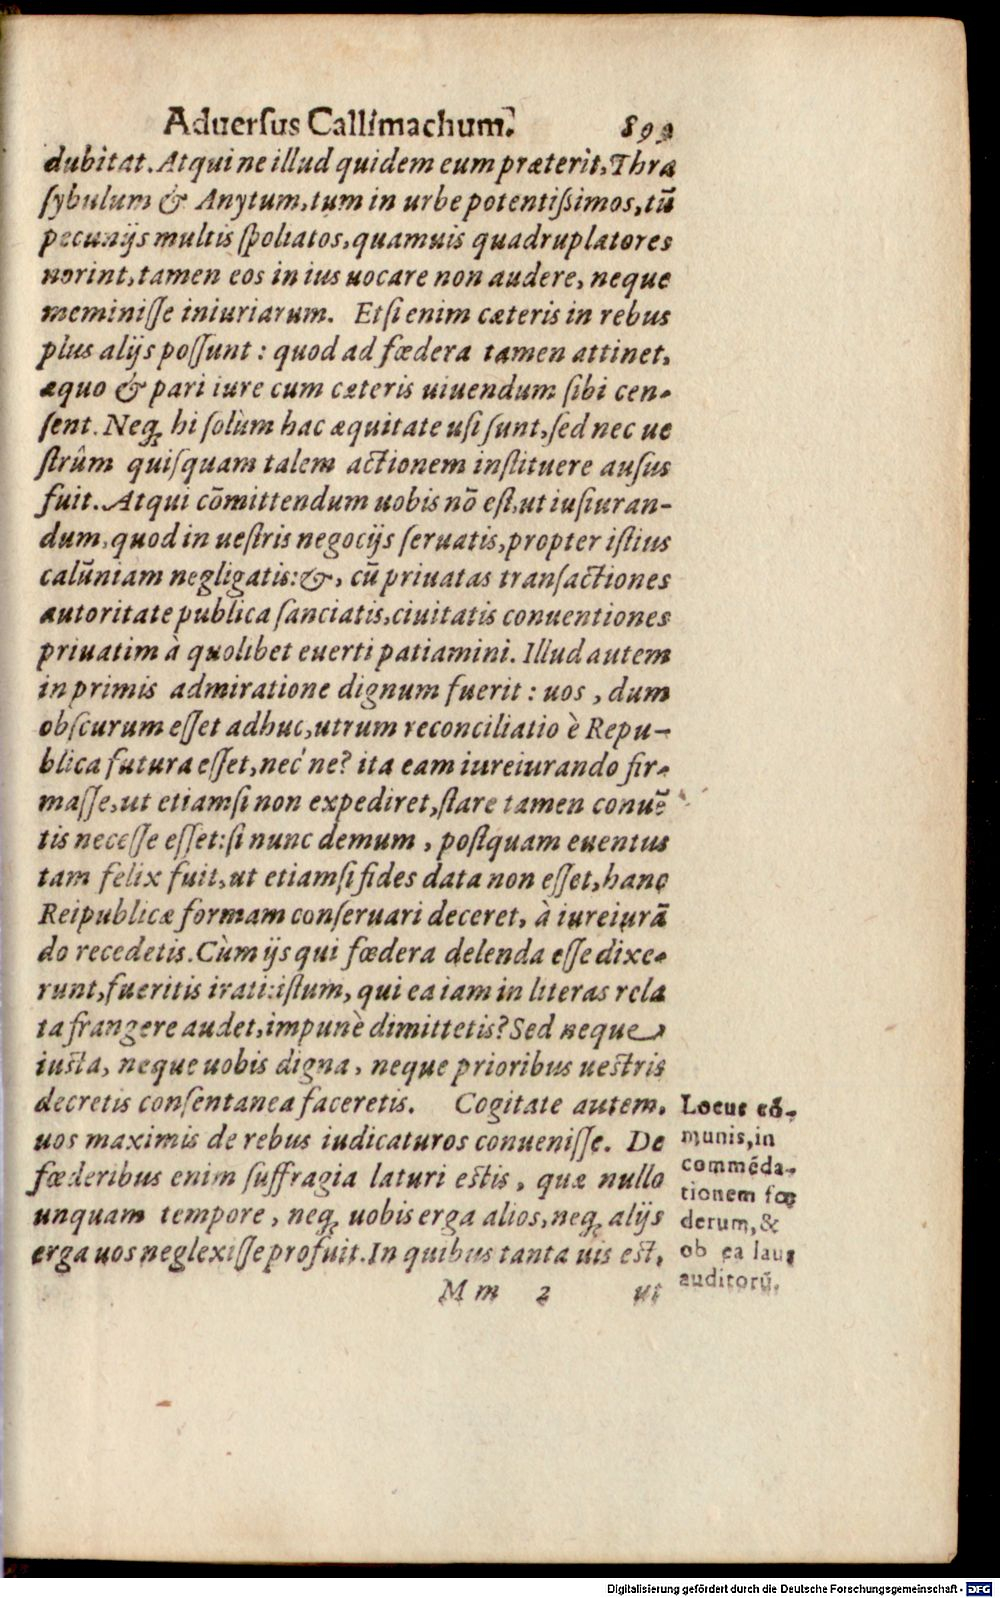 Aduerſus Callimachum. 899
dubitat. Atqui ne illud quidem eum præterit, Thra
ſybulum & Anytum, tum in urbe potentißimos, tū
pecunijs multis ſpoliatos, quamuis quadruplatores
norint, tamen eos in ius uocare non audere, neque
meminiſſe iniuriarum. Etſi enim cæteris in rebus
plus alijs poſſunt: quod ad fœdera tamen attinet,
æquo & pari iure cum cæteris uiuendum ſibi cen-
ſent. Neq; hi ſolùm hac æquitate uſi ſunt, ſed nec ue
ſtrûm quiſquam talem actionem inſtituere auſus
fuit. Atqui cōmittendum uobis nō eſt, ut iuſiuran-
dum, quod in ueſtris negocijs ſeruatis, propter iſtius
calūniam negligatis: &, cū priuatas tranſactiones
autoritate publica ſanciatis, ciuitatis conuentiones
priuatim à quolibet euerti patiamini. Illud autem
in primis admiratione dignum fuerit: uos, dum
obſcurum eſſet adhuc, utrum reconciliatio è Repu-
blica futura eſſet, nec ne? ita eam iureiurando fir-
maſſe, ut etiamſi non expediret, ſtare tamen conuē
tis neceſſe eſſet: ſi nunc demum, poſtquam euentus
tam felix fuit, ut etiamſi fides data non eſſet, hanc
Reipublicæ formam conſeruari deceret, à iureiurā
do recedetis. Cùm ijs qui fœdera delenda eſſe dixe-
runt, fueritis irati: iſtum, qui ea iam in literas rela
ta frangere audet, impunè dimittetis? Sed neque
iusta, neque uobis digna, neque prioribus uestris
decretis conſentanea faceretis. Cogitate autem,
uos maximis de rebus iudicaturos conueniſſe. De
fœderibus enim ſuffragia laturi estis, quæ nullo
unquam tempore, neq; uobis erga alios, neq; alijs
erga uos neglexiſſe profuit. In quibus tanta uis est,
Mm 2 ut
Locus cō-
munis, in
commēda-
tionem fœ
derum, &
ob ea laus
auditorū.
Digitalisierung gefördert durch die Deutsche Forschungsgemeinschaft - DFG